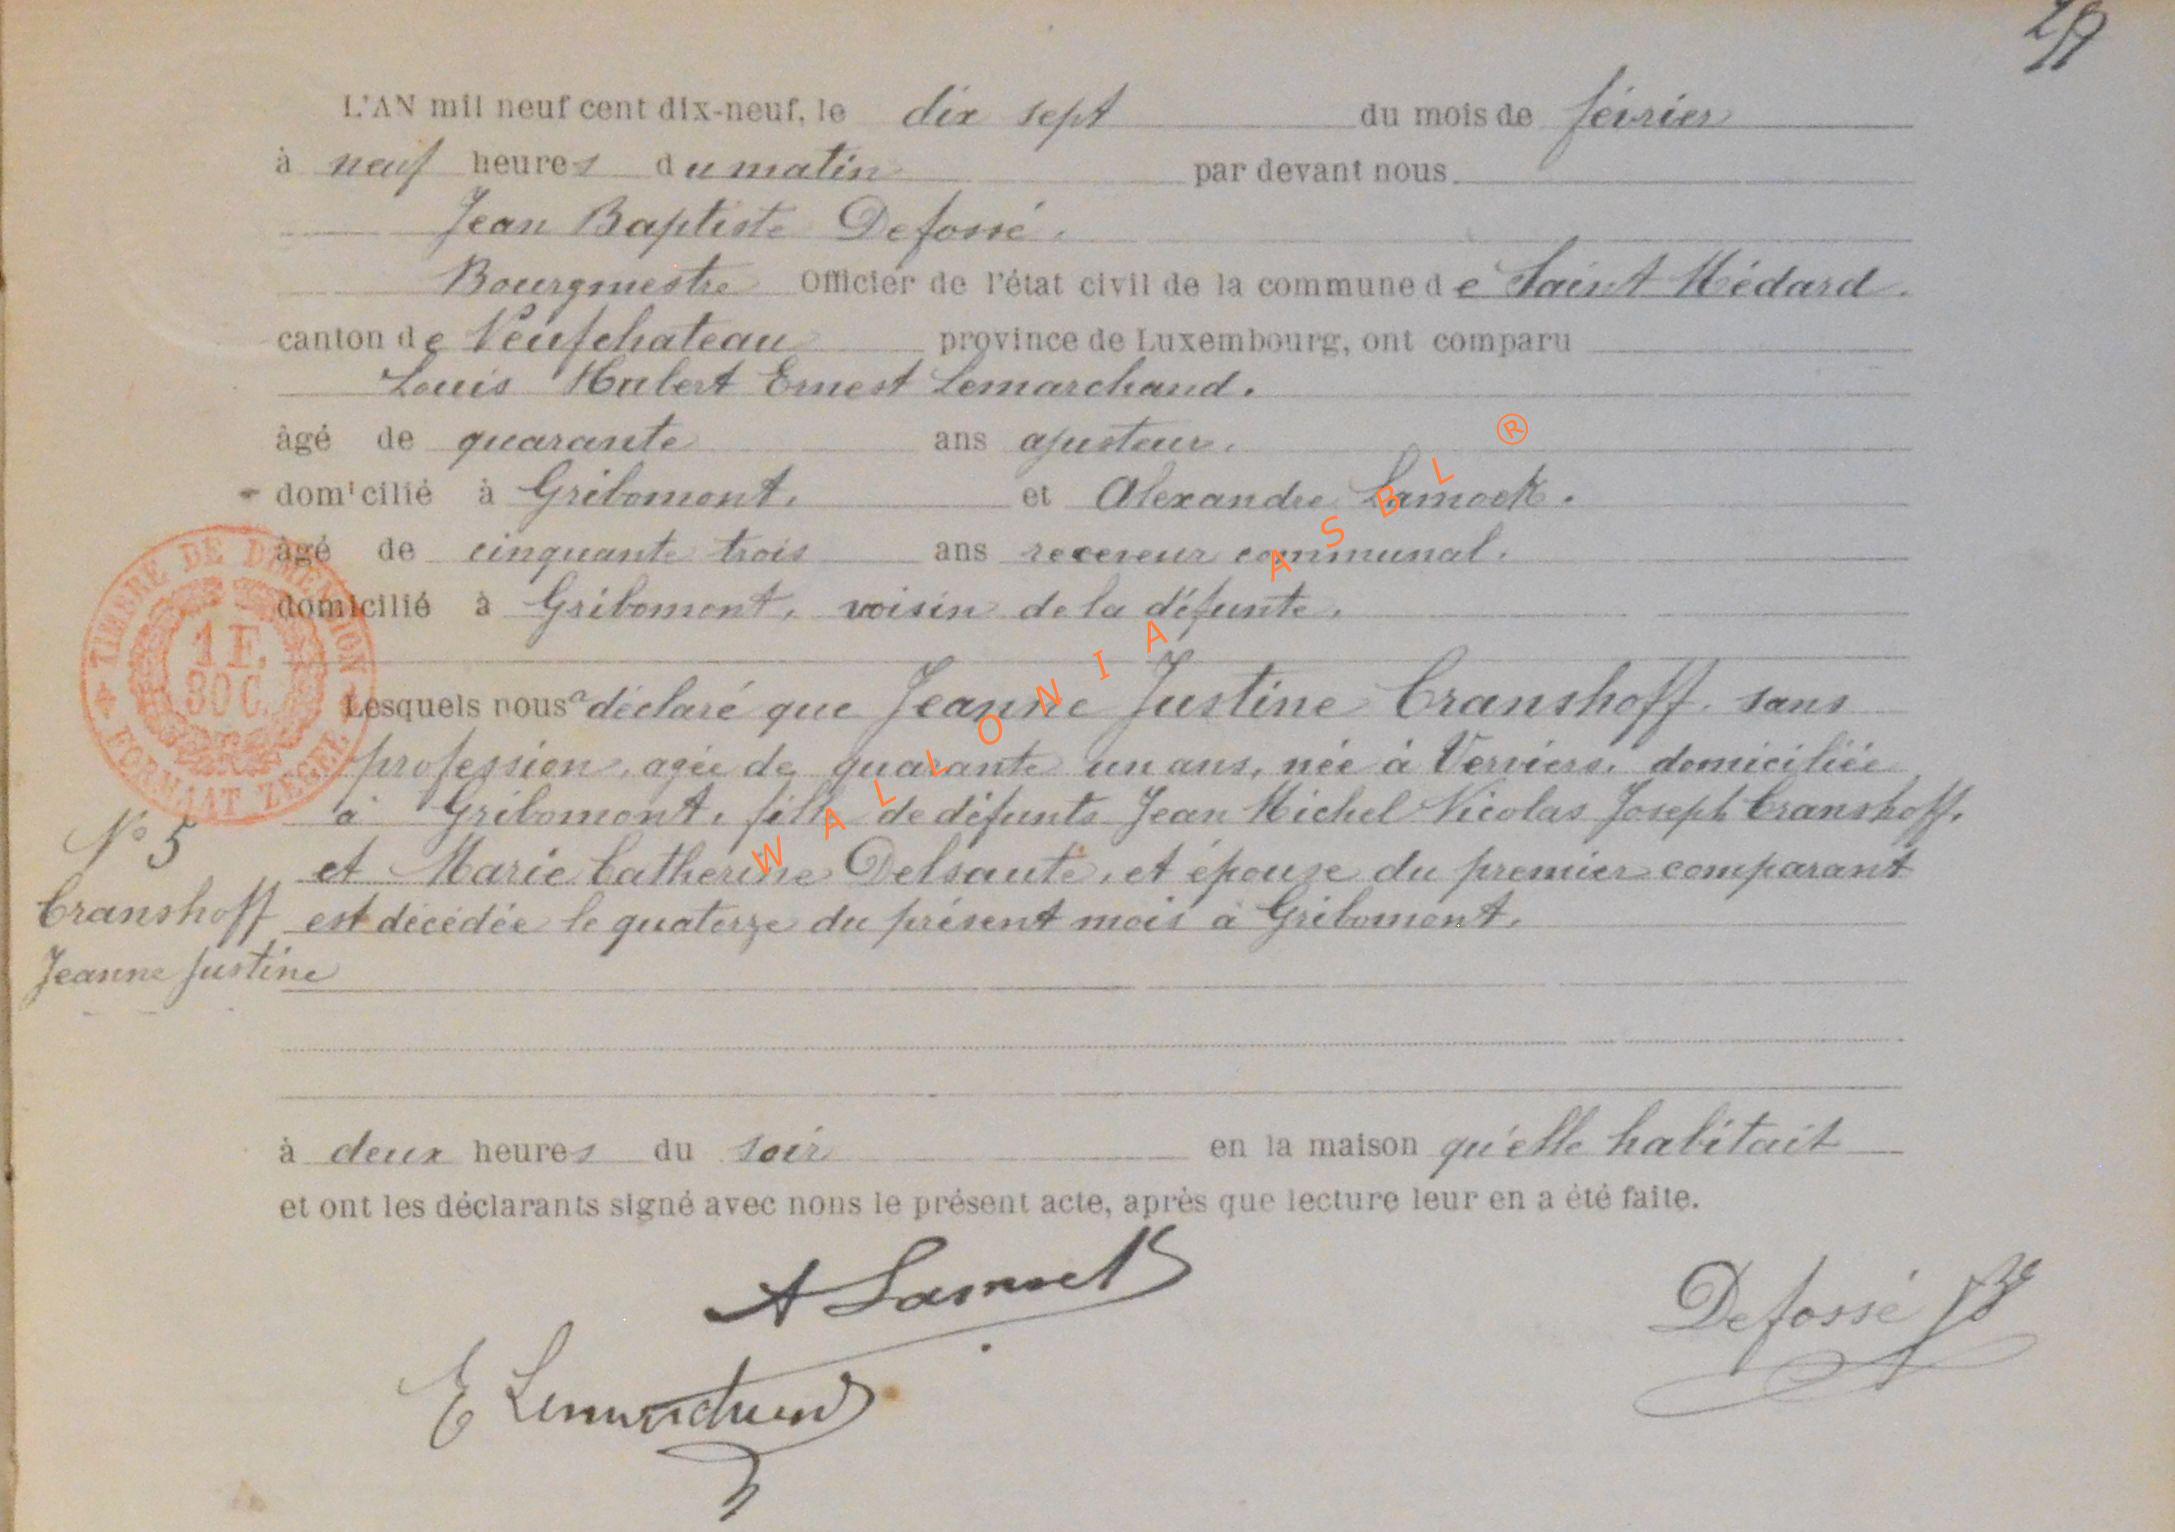 L'AN mil neuf cent dix-neuf, le dix sept du mois de février
à neuf heures du matin par devant nous
Jean Baptiste Defossé.
Bourgmestre Officier de l'état civil de la commune de Saint Médard.
canton de Neufchateau province de Luxembourg, ont comparu
Louis Hubert Ernest Lemarchand.
âgé de quarante ans ajusteur.
domicilié à Gribomont. et Alexandre Lamock.
âgé de cinquante trois ans receveur communal.
domicilié à Gribomont, voisin de la défunte.
TIMBRE DE DIMENSION
1 F.
30 C.
FORMAAT ZEGEL
Lesquels nous a déclaré que Jeanne Justine Cranshoff. sans
profession, agée de quarante un ans, née à Verviers, domiciliée
à Gribomont, fille de défunts Jean Michel Nicolas Joseph Cranshoff.
et Marie Catherine Delsaute, et épouse du premier comparant
est décédée le quatorze du présent mois à Gribomont.
N° 5
Cranshoff
Jeanne Justine
à deux heures du soir en la maison qu'elle habitait
et ont les déclarants signé avec nous le présent acte, après que lecture leur en a été faite.
A Lamock
E Lemarchand
Defossé JB
WALLONIA ASBL ®